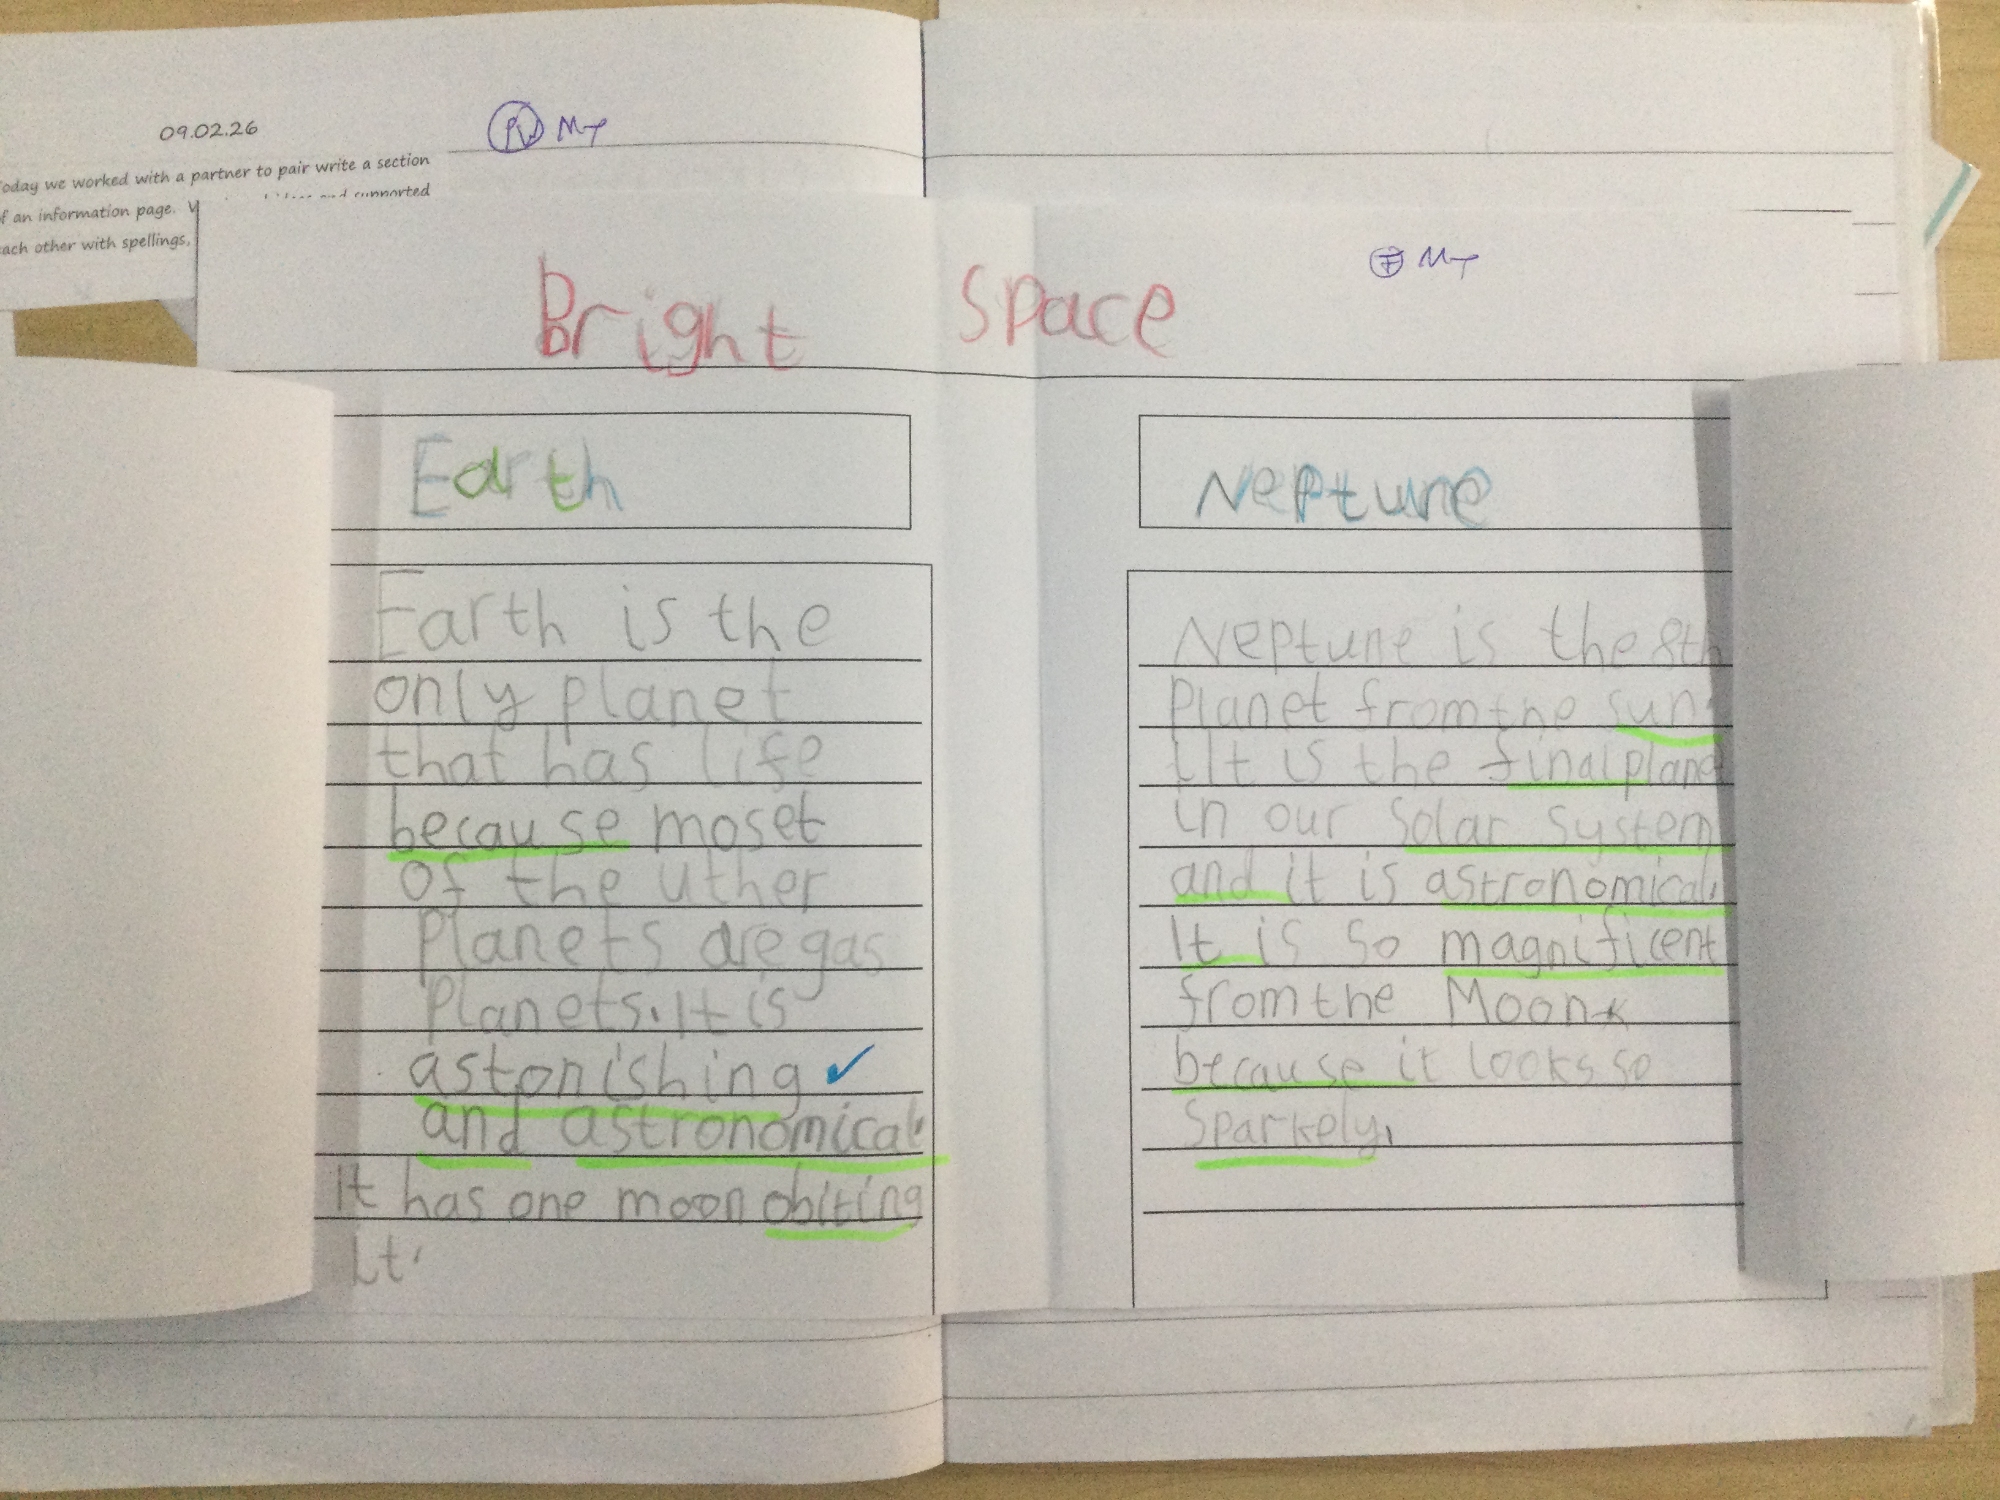 09.02.26
PW MT
oday we worked with a partner to pair write a section
f an information page.
and supported
ach other with spellings,
F MT
Bright Space
Earth
Earth is the
only planet
that has life
because moset
of the uther
Planets are gas
Planets. It is
astonishing ✓
and astronomical.
It has one moon obiting
it.
Neptune
Neptune is the 8th
Planet from the sun.
It is the final planet
in our Solar System
and it is astronomical.
It is so magnificent
from the Moon
because it looks so
Sparkely.